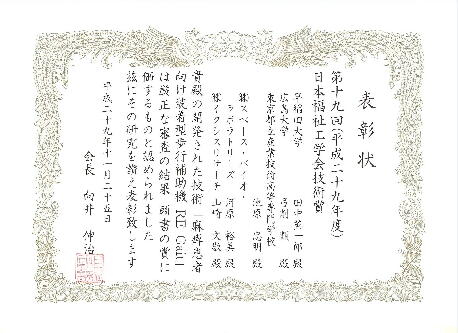 表彰状
第十九回(平成二十九年度)
日本福祉工学会技術賞
早稲田大学 田中英一郎 殿
広島大学 弓削 類 殿
東京都立産業技術高等専門学校
池原 忠明 殿
㈱スペース・バイオ・
ラボラトリーズ 河原 裕美 殿
㈱イクシスリサーチ 山崎 文敬 殿
貴殿の開発された技術「麻痺患者
向け装着型歩行補助機 RE-Gait」
は厳正な審査の結果 頭書の賞に
価するものと認められました
茲にその研究を讃え表彰致します
平成二十九年十一月二十五日
会長 向井 伸治